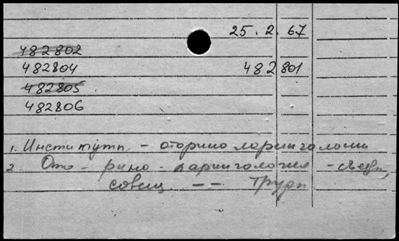 25.2.67
482802
482804 482801
482805
482806
1. Институтп. - оторино ларингологии
2. Ото - рино - ларингология -
совещ -- Труды